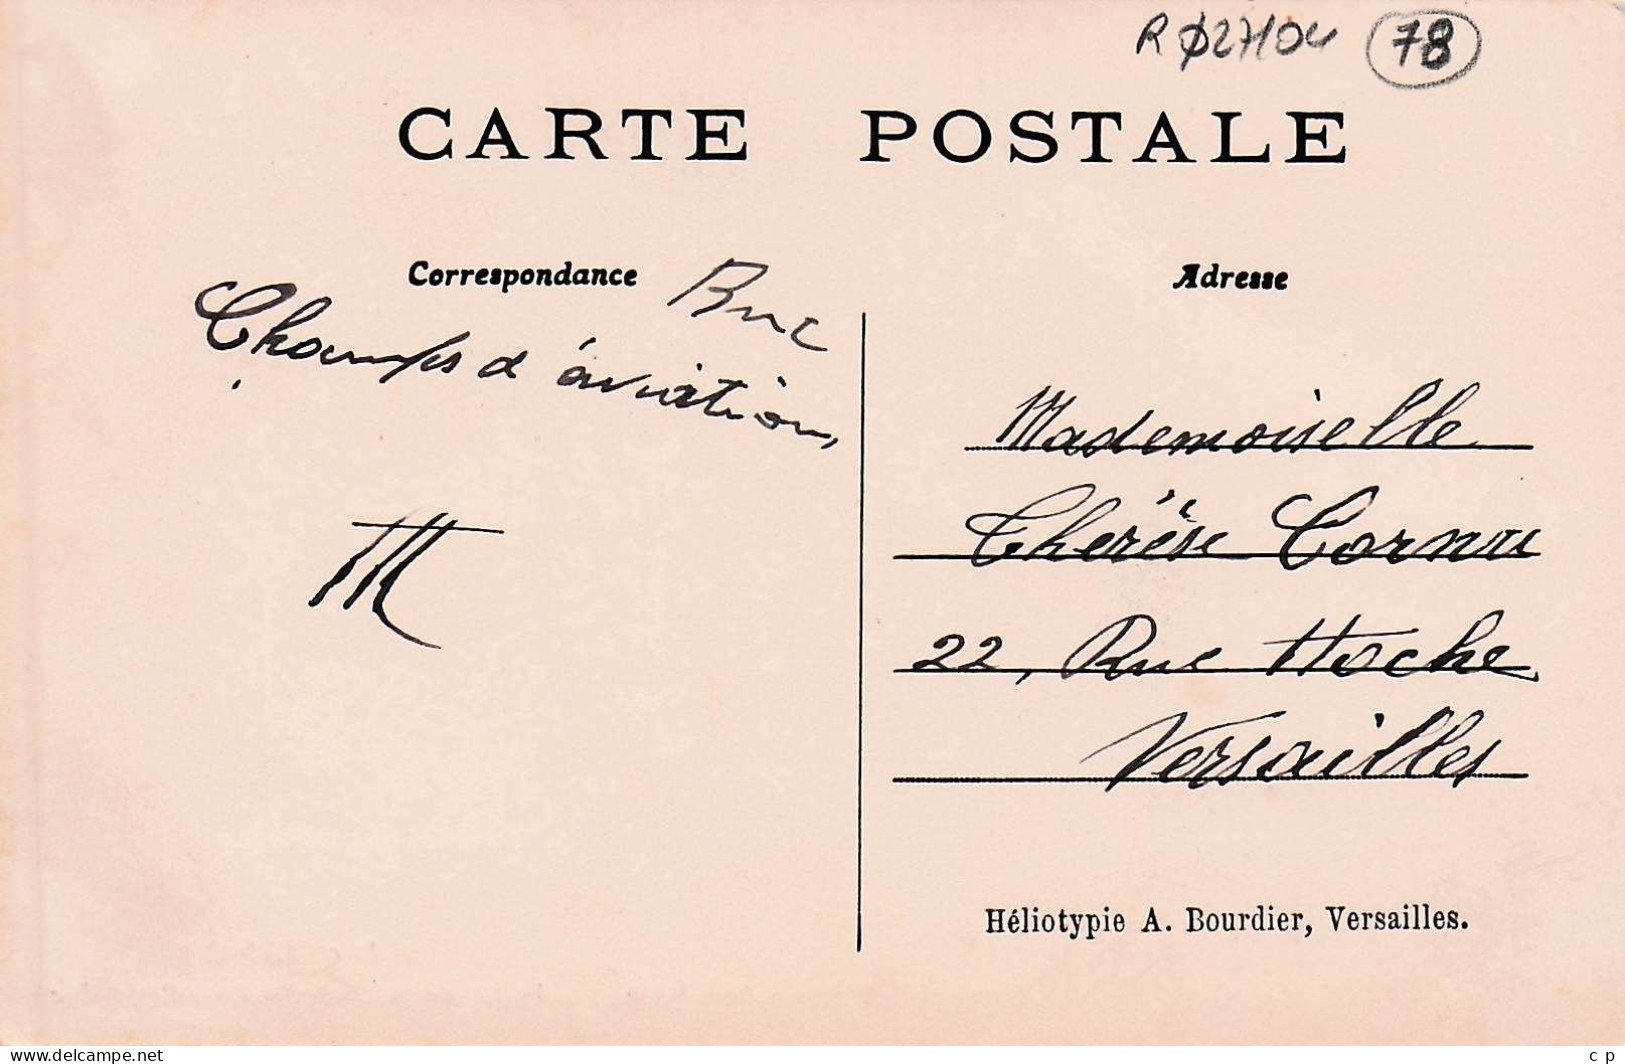 R Ø27/04 78
CARTE POSTALE
Correspondance
Buc
Champs d'aviation,
M
Adresse
Mademoiselle
Thérèse Cornu
22, Rue Hoche
Versailles
Héliotypie A. Bourdier, Versailles.
www.delcampe.net
c p